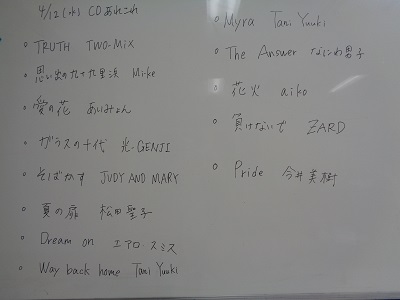 4/12(水) CDあれこれ
・TRUTH TWO-MIX
・思い出の九十九里浜 Mi-Ke
・愛の花 あいみょん
・ガラスの十代 光GENJI
・そばかす JUDY AND MARY
・夏の扉 松田聖子
・Dream on エアロスミス
・Way back home Tani Yuuki
・Myra Tani Yuuki
・The Answer なにわ男子
・花火 aiko
・負けないで ZARD
・Pride 今井美樹